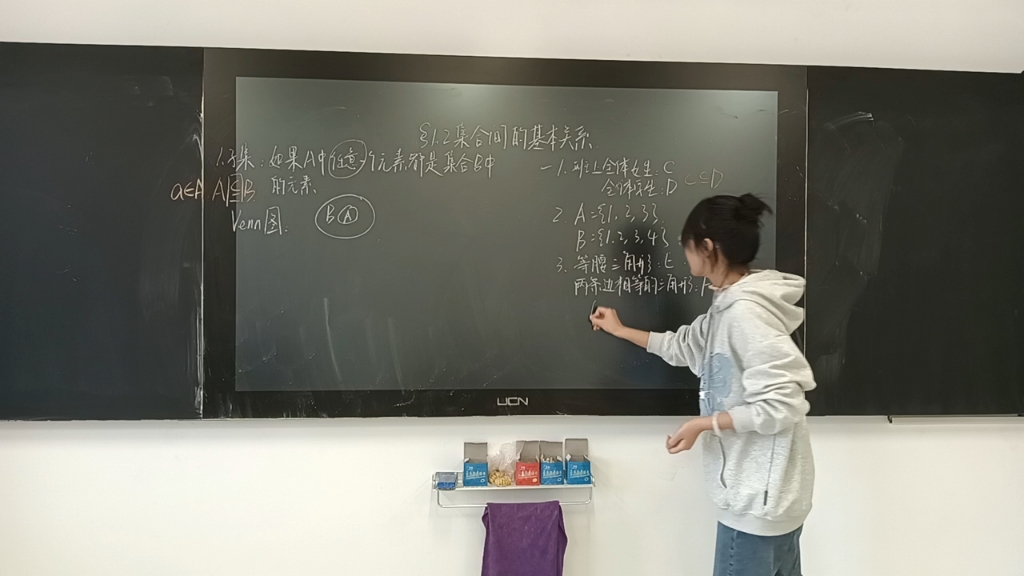 §1.2集合间的基本关系
1.子集:如果A中任意个元素都是集合B中
a∈A A⊆B 的元素
Venn图.
B A
一1.班上全体女生.C
全体学生.D C⊆D
2 A={1,2,3}
B={1,2,3,4}
3.等腰三角形:E
两条边相等的三角形:F
UCN